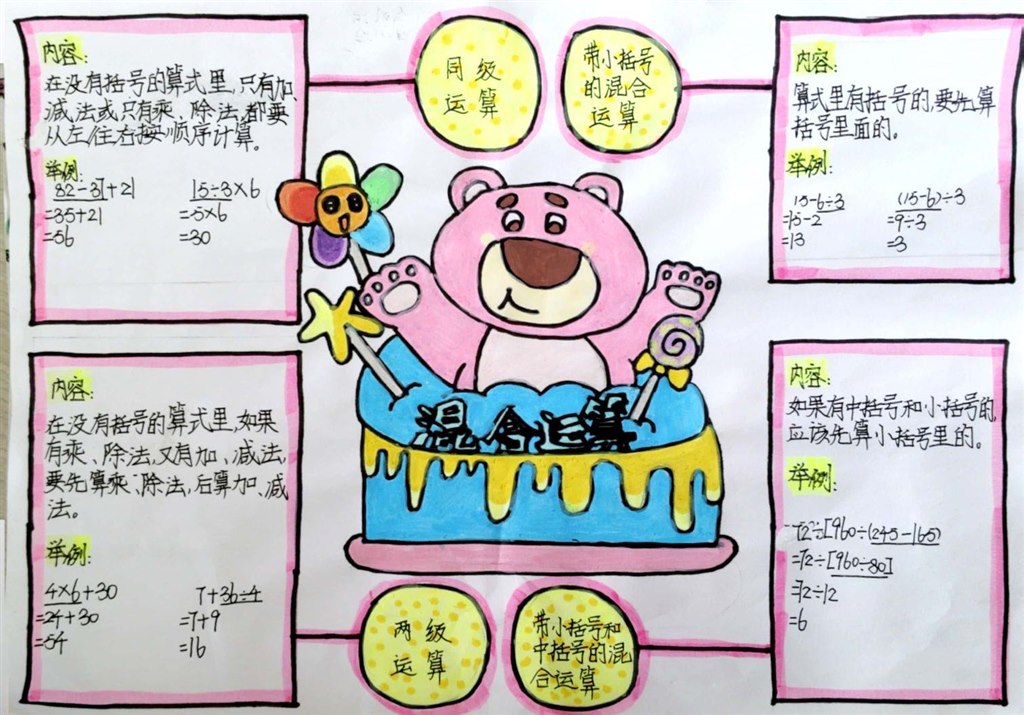 内容:
在没有括号的算式里,只有加、
减法或只有乘、除法,都要
从左往右按顺序计算。
举例:
82-37+21
=35+21
=56
15÷3×6
=5×6
=30
同级
运算
带小括号
的混合
运算
内容:
算式里有括号的,要先算
括号里面的。
举例:
15-6÷3
=15-2
=13
(15-6)÷3
=9÷3
=3
混合运算
内容:
在没有括号的算式里,如果
有乘、除法,又有加、减法,
要先算乘、除法,后算加、减
法。
举例:
4×6+30
=24+30
=54
7+36÷4
=7+9
=16
两级
运算
带小括号和
中括号的混
合运算
内容:
如果有中括号和小括号的,
应该先算小括号里的。
举例:
72÷[960÷(245-165)
=72÷[960÷80]
=72÷12
=6